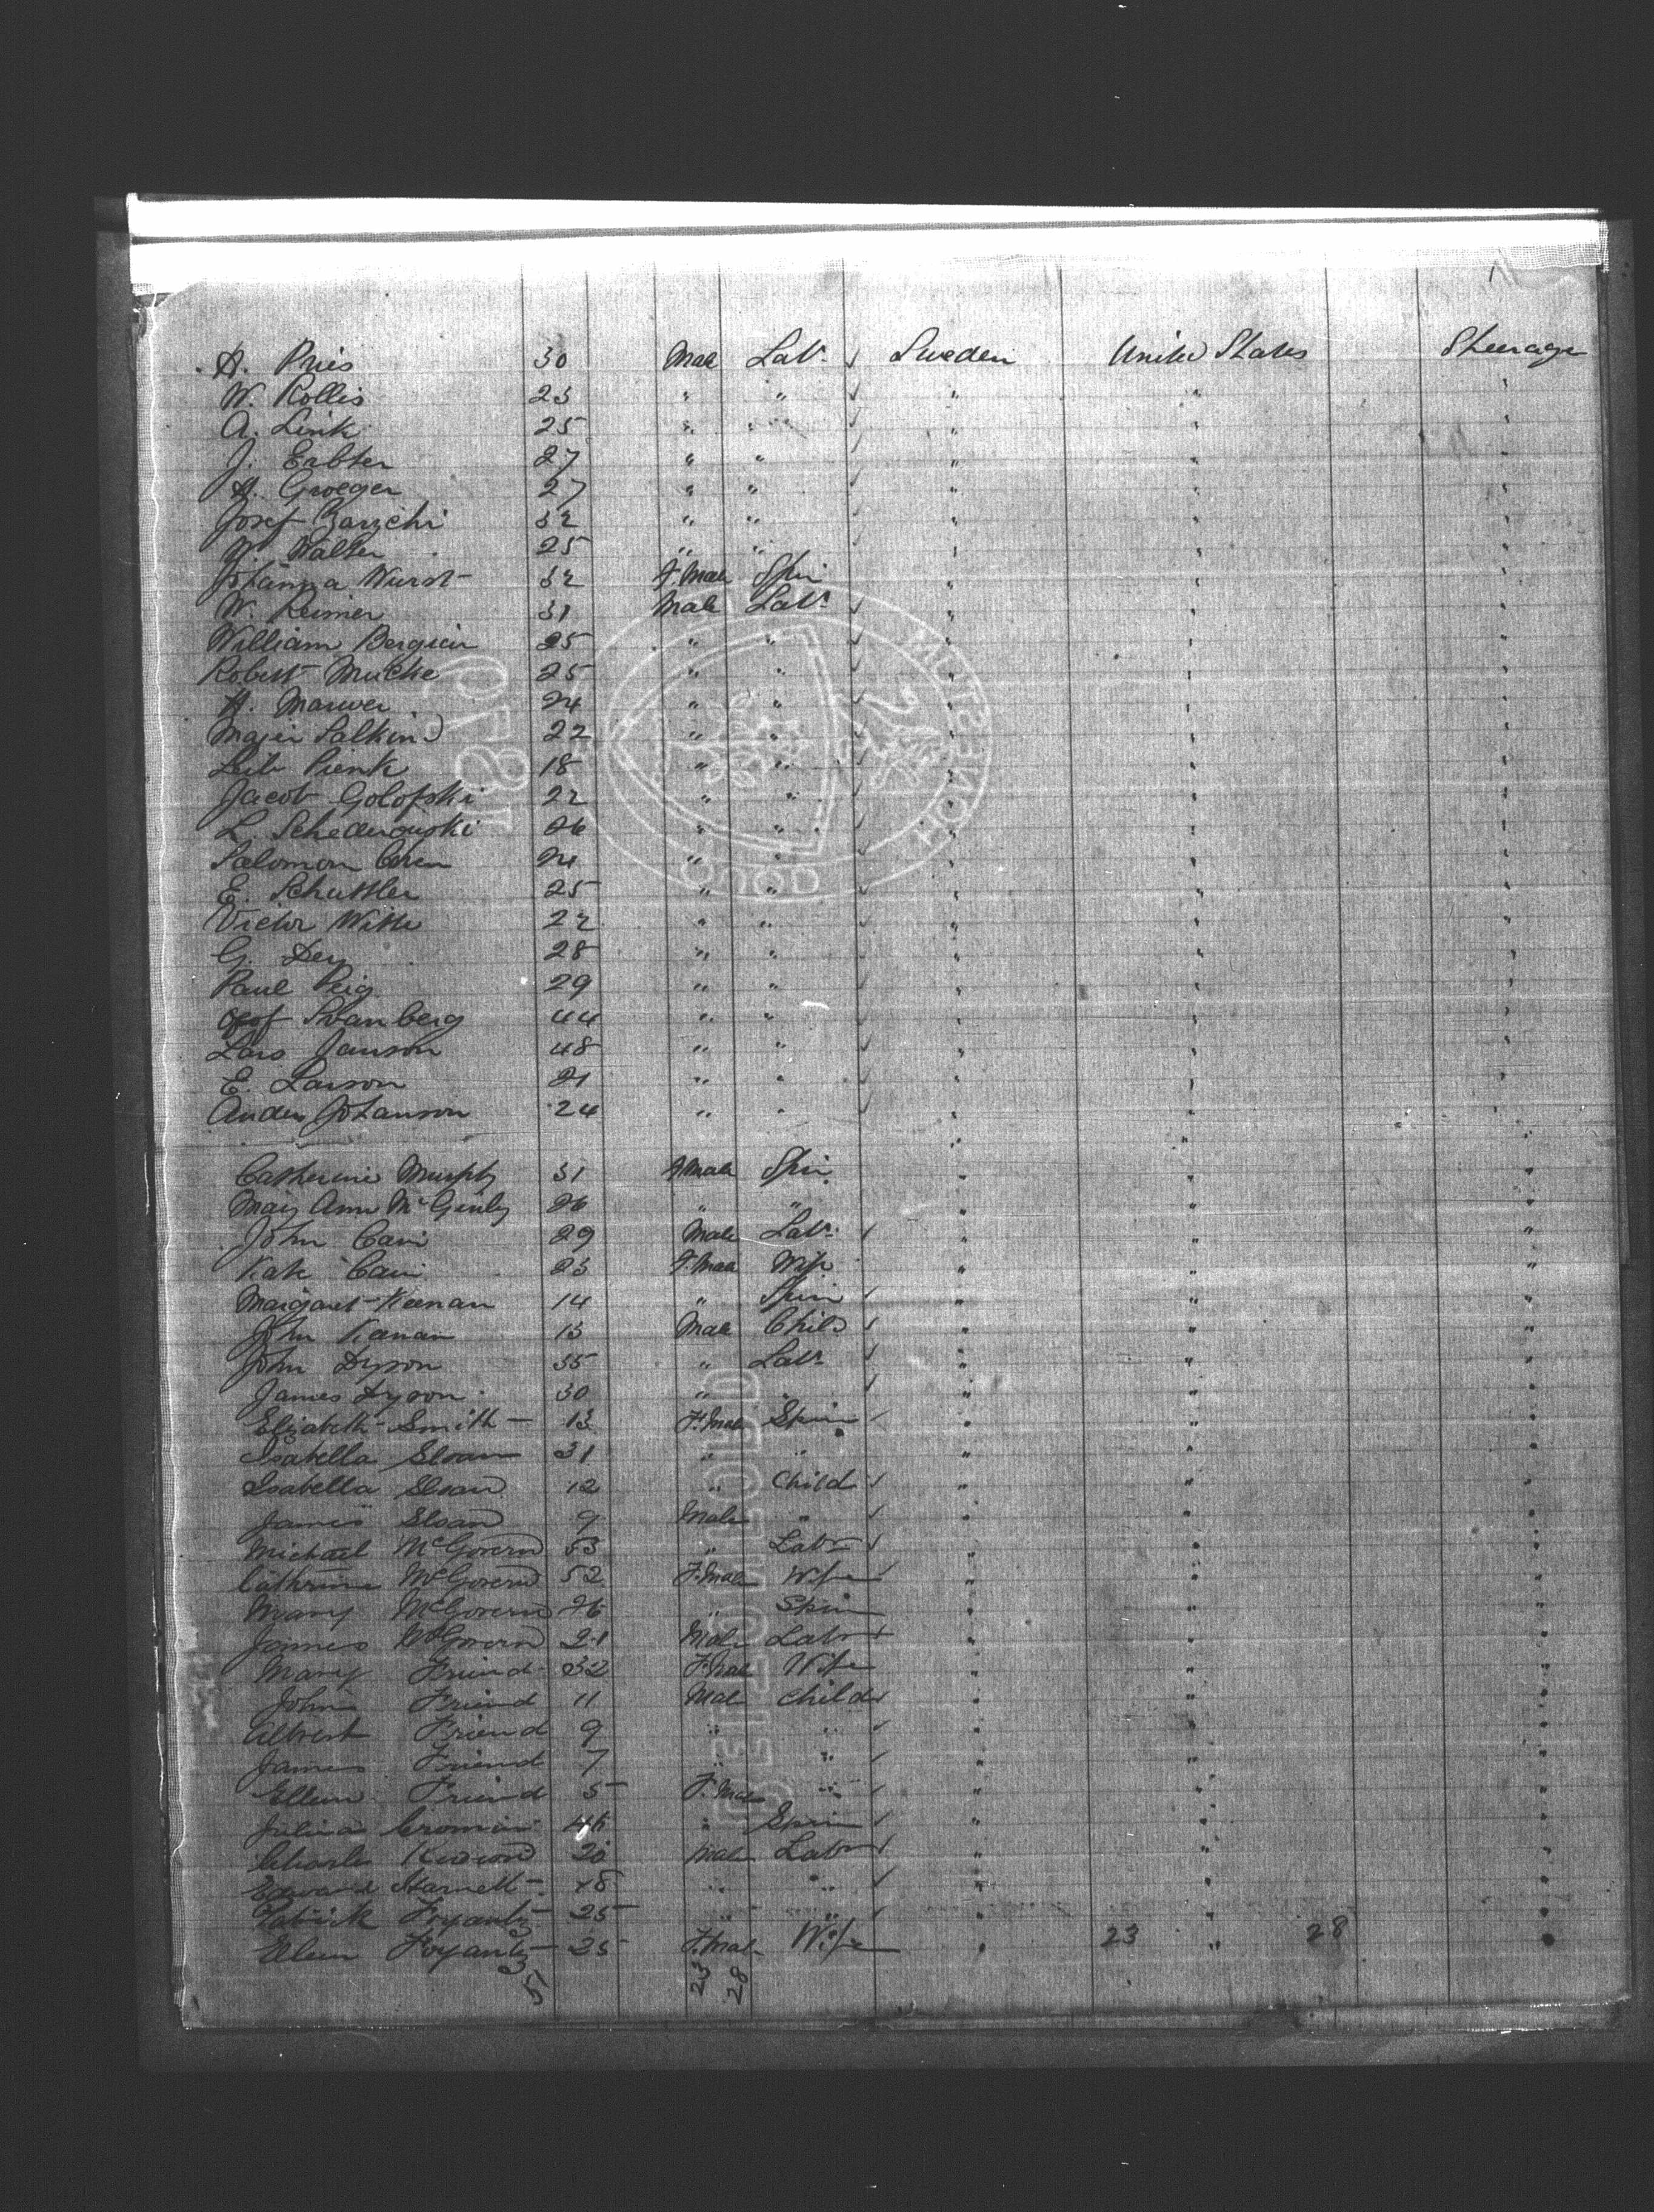 H. Pries 30 Male Labr ✓ Sweden United States Steerage
W. Rollis 23 " " ✓ " " "
A. Link 25 " " ✓ " " "
J. Erbter 27 " " ✓ " " "
H. Groeger 27 " " ✓ " " "
Josef 32 " " ✓ " " "
W. Walter 25 " " ✓ " " "
Johanna Wurst 32 F.Male Spin " " "
W. Reimer 31 Male Labr ✓ " " "
William 25 " " ✓ " " "
Robert Mucke 25 " " ✓ " " "
H. Marwer 24 " " ✓ " " "
Majer Salkind 22 " " ✓ " " "
Leib Pienk 18 " " ✓ " " "
Jacob Golofski 22 " " ✓ " " "
L. 26 " " ✓ " " "
Salomon 24 " " ✓ " " "
E. Schuttler 25 " " ✓ " " "
Victor Witte 22 " " ✓ " " "
G. Dey 28 " " ✓ " " "
Paul Peig 29 " " ✓ " " "
Svanberg 44 " " ✓ " " "
Lars Janson 48 " " ✓ " " "
E. Larson 21 " " ✓ " " "
Anders Johanson 24 " " ✓ " " "
" " "
Catherine Murphy 31 F.Male Spin " " "
Mary Ann McGinly 26 " " " " "
John Cain 29 Male Labr ✓ " " "
Kate Cain 23 F.Male Wife " " "
Margaret Keenan 14 " Spin ✓ " " "
John Keenan 13 Male Child ✓ " " "
John Dyson 35 " Labr ✓ " " "
James Dyson 30 " " ✓ " " "
Elizabeth Smith 13 F.Male Spin ✓ " " "
Isabella Sloan 31 " " " " "
Isabella Sloan 12 " Child ✓ " " "
James Sloan 9 Male " ✓ " " "
Michael McGovern 53 " Labr ✓ " " "
Cathrine McGovern 52 F.Male Wife ✓ " " "
Mary McGovern 26 " Spin " " "
James McGovern 21 Male Labr ✓ " " "
Mary Friend 32 F.Male Wife " " "
John Friend 11 Male Child ✓ " " "
Albert Friend 9 " " ✓ " " "
James Friend 7 " " ✓ " " "
Ellen Friend 5 F.Male " ✓ " " "
Julina Cronin 46 " Spin ✓ " " "
Charles 20 Male Labr ✓ " " "
Edward Harnett 18 " " ✓ " " "
Patrick 25 " " ✓ " " "
Ellen 25 F.Male Wife " 23 " 28 "
51 23 28